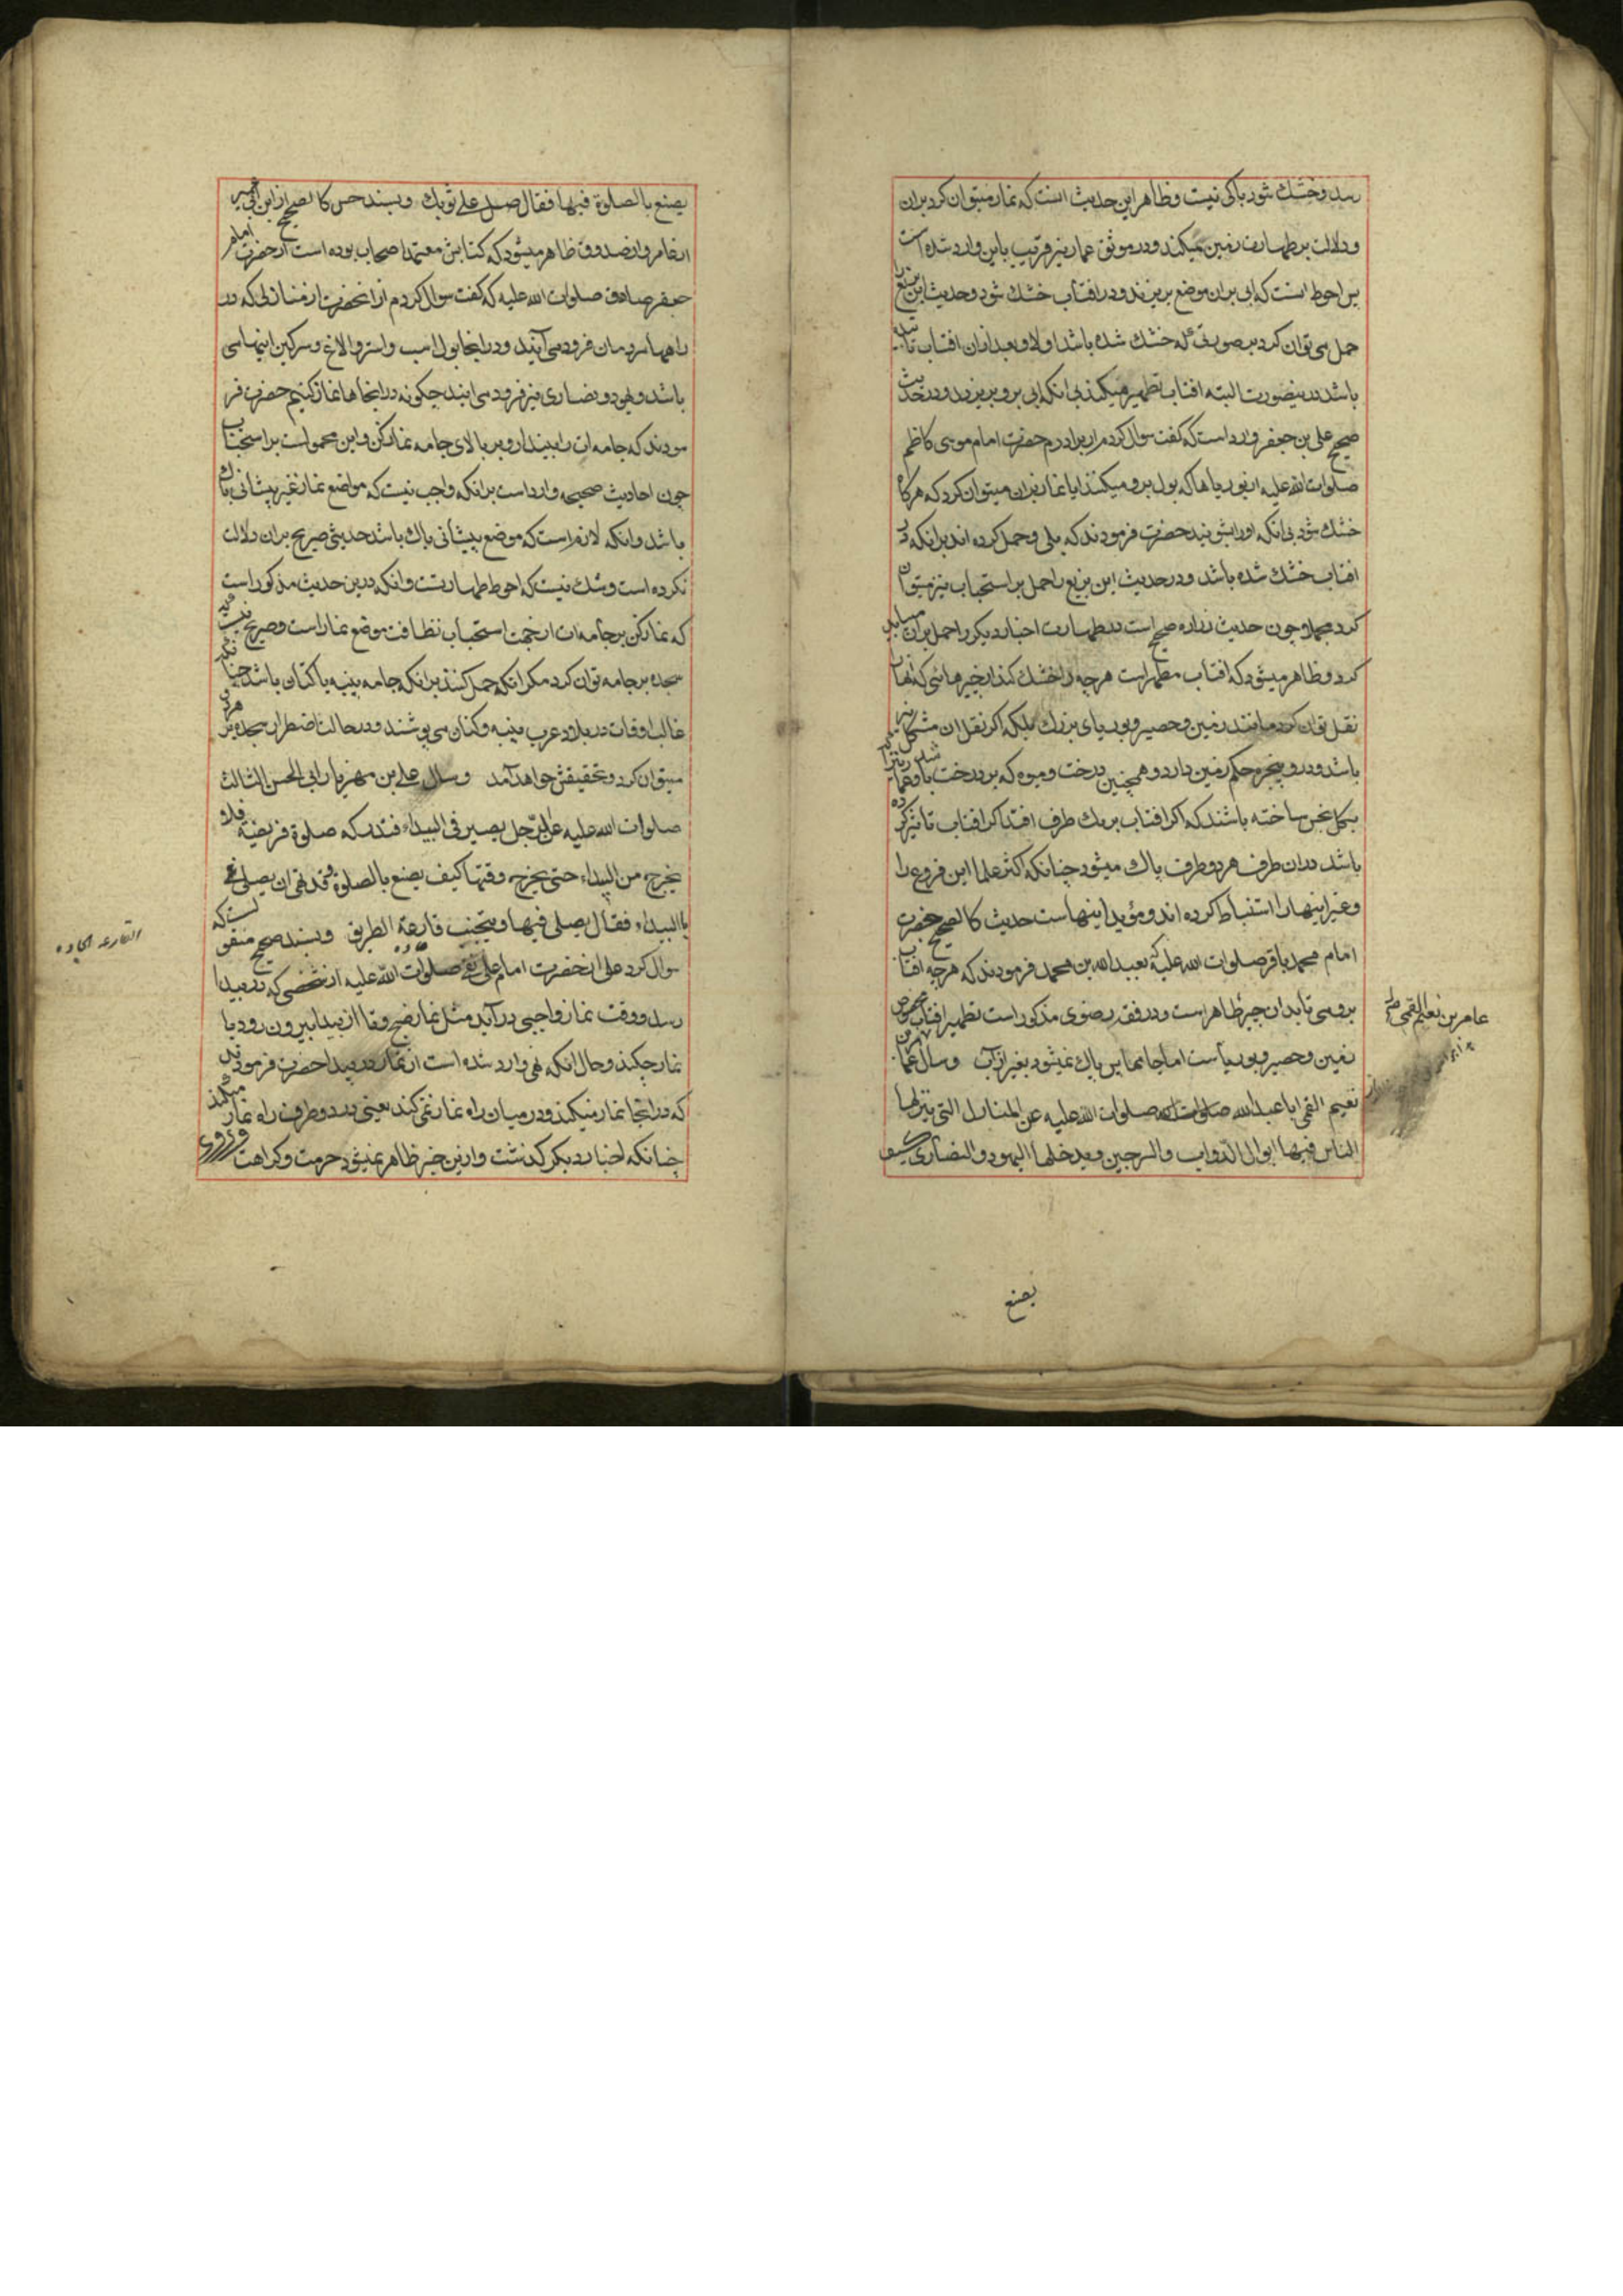 رسد و خشك شود باكى نيست و ظاهر اين حديث انست كه نماز ميتوان كرد بران
و دلالت بر طهارت زمين ميكند و در موثق عمار نيز قريب باين وارد شده است
پس احوط انست كه ابى بران موضع بريزند و در افتاب خشك شود و حديث ابن بزيع را
حمل مى توان كرد بر صورتى كه خشك شده باشد اولا و بعد ازان افتاب تابيده
باشد در ينصورت البته افتاب تطهير ميكند بى انكه ابى برو بريزند و در حديث
صحيح على بن جعفر وارد است كه گفت سوال كردم از برادرم حضرت امام موسى كاظم
صلوات الله عليه از بوريا ها كه بول برو ميكنند ايا نماز بران ميتوان كرد كه هرگاه
خشك شود بى انكه او را بشويند حضرت فرمودند كه بلى و حمل كرده اند برانكه در
افتاب خشك شده باشد و در حديث ابن بزيع را حمل بر استحباب نيز ميتوان
كرد مجملا چون حديث زراره صحيح است در طهارت اخبار ديگر را حمل بران ميبايد
كرد و ظاهر ميشود كه افتاب مطهر است هر چه را خشك كند از چيزهائى كه انها را
نقل توان كرد مانند زمين و حصير و بورياى بزرك بلكه اكر نقل ان مشكل نيز
باشد و در و پنجره حكم زمين دارد و همچنين درخت و ميوه كه بر درخت باشد
بكل نجس ساخته باشند كه اكر افتاب بريك طرف افتد اكر افتاب تاثير كرده
باشد دران طرف هر دو طرف پاك ميشود چنانكه اكثر علما اين فروع را
و غير اينها را استنباط كرده اند و مؤيد اينهاست حديث كالصحيح حضرت
امام محمد باقر صلوات الله عليه كه بعبيد الله بن محمد فرمودند كه هر چه افتاب
برو مى تابد ان چيز طاهر است و در فقه رضوى مذكور است تطهير افتاب مخصوص
زمين و حصير و بورياست اما جامها پس پاك نميشود بغير از آب و سال عامر بن
نعيم القمى ابا عبد الله صلوات الله عليه عن المنازل التى ينزلها
الناس فيها ابوال الدواب و السرجين و يدخلها اليهود و النصارى كيف
عامر بن نعيم القمى
يصنع
يصنع بالصلوة فيها فقال صل على ثوبك و بسند حسن كالصحيح از ابن ابى عمير
از عامر و از صدوق ظاهر ميشود كه كتابش معتمد اصحاب بوده است از حضرت امام
جعفر صادق صلوات الله عليه كه گفت سوال كردم از انحضرت از منازلى كه در
راهها مردمان فرود مى آيند و در انجا بول اسب و استر و الاغ و سركين اينها مى
باشد و يهود و نصارى نيز فرود مى ايند چكونه در انجاها نماز كنيم حضرت فر
مودند كه جامه ات را بينداز و بر بالاى جامه نماز كن و اين محمولست بر استحباب
چون احاديث صحيحه وارد است برانكه واجب نيست كه مواضع نماز غير پيشانى پاك
باشد و انكه لازم است كه موضع پيشانى پاك باشد حديثى صريح بران دلالت
نكرده است و شك نيست كه احوط طهارتست و انكه درين حديث مذكور است
كه نماز كن بر جامه ات از جهت استحباب نظافت موضع نماز است و صريح نيست
سجده بر جامه توان كرد مكر انكه حمل كنند برانكه جامه پنبه يا كتان باشد چنا
غالب اوقات در بلاد عرب پنبه و كتان مى پوشند و در حالت اضطرار سجده بر هر دو
ميتوان كرد و تحقيقش خواهد آمد و سال على بن مهزيار ابى الحسن الثالث
صلوات الله عليه عن الرجل يصير فى البيداء فتدركه صلوة فريضة فلا
يخرج من البيداء حتى يخرج وقتها كيف يصنع بالصلوة و قد نهى ان يصلى
بالبيداء فقال يصلى فيها و يتجنب قارعة الطريق و بسند صحيح منقولست كه
سوال كرد على از حضرت امام على نقى صلوات الله عليه از شخصى كه در بيدا
رسد و وقت نماز واجبى در آيد مثل نماز صبح و تا از بيدا بيرون رود
نماز چكند و حال انكه نهى وارد شده است از نماز در بيدا حضرت فرمودند
كه در انجا نماز ميكند و در ميان راه نماز نمى كند يعنى در دو طرف راه نماز ميكند
چنانكه اخبار ديكر كذشت و ازين خبر ظاهر نميشود حرمت و كراهت
القارعه الجاده